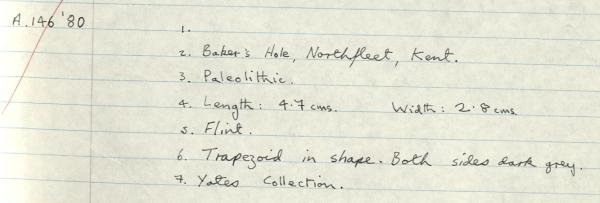 A.146 '80
1.
2. Baker's Hole, Northfleet, Kent.
3. Paleolithic.
4. Length: 4.7 cms. Width: 2.8 cms.
5. Flint.
6. Trapezoid in shape. Both sides dark grey.
7. Yates Collection.